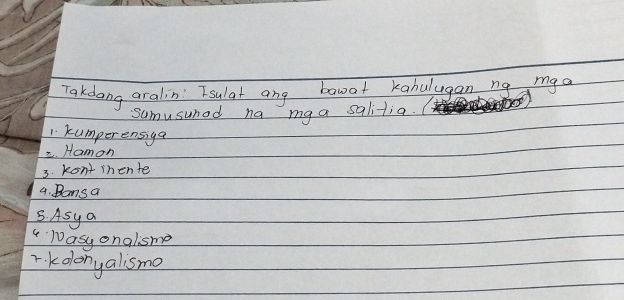 Takdang aralin: Isulat ang bawat kahulugan ng mga
sumusunod na mga salitia. (
1. Kumperensiya
2. Hamon
3. Kontinente
4. Bansa
5. Asya
6. Nasyonalismo
7. Kolonyalismo